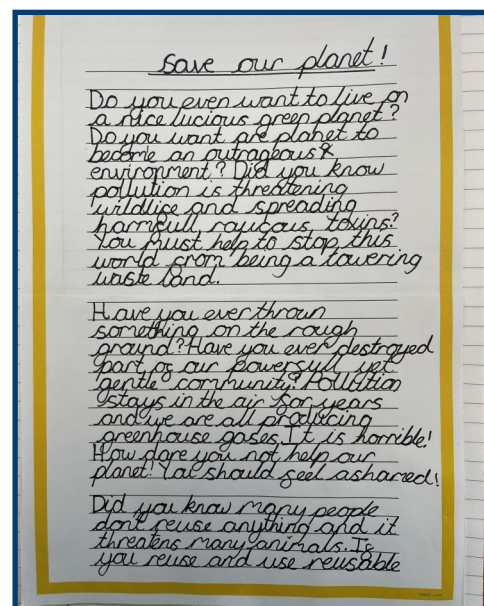 Save our planet!
Do you even want to live on
a nice lucious green planet?
Do you want are planet to
become an outrageous
environment? Did you know
pollution is threatening
wildlice and spreading
harmfull raucous toxins?
You must help to stop this
world from being a towering
waste land.
Have you ever thrown
something on the rough
ground? Have you ever destroyed
part of our powerfull yet
gentle community? Pollution
stays in the air for years
and we are all producing
greenhouse gases. It is horrible!
How dare you not help our
planet! You should feel ashamed!
Did you know many people
don't reuse anything and it
threatens many animals. If
you reuse and use reusable